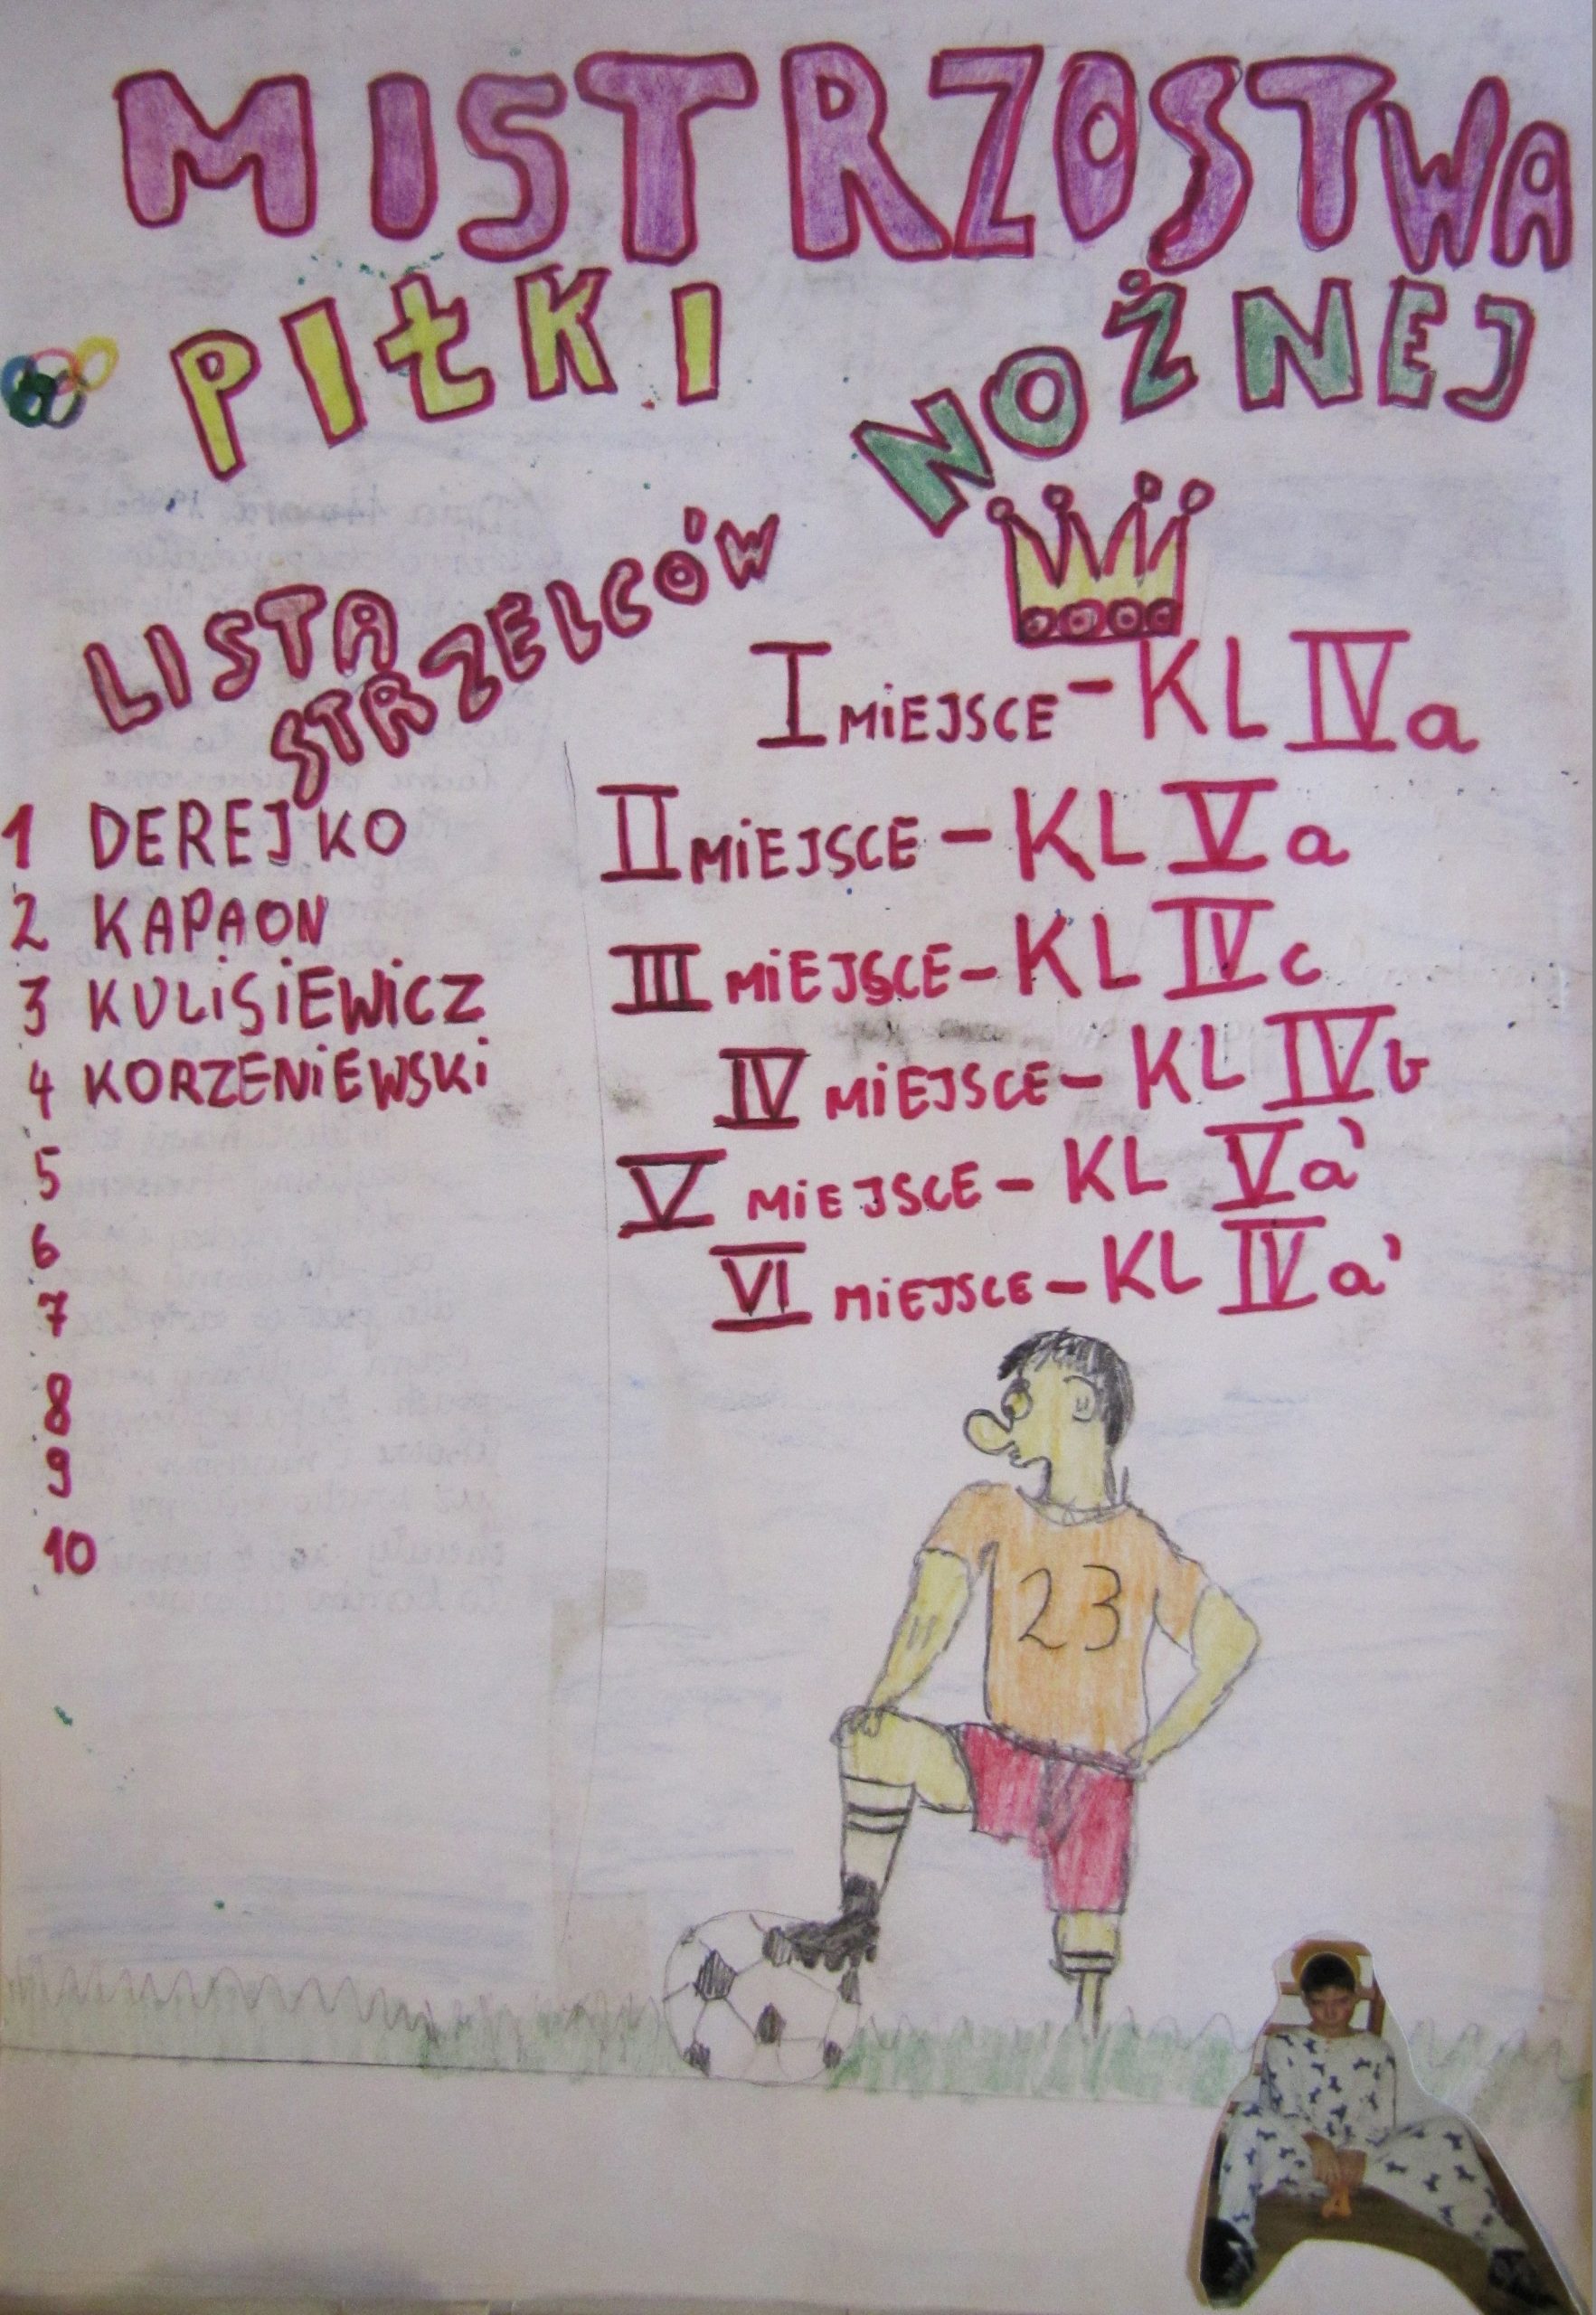 MISTRZOSTWA
PIŁKI NOŻNEJ
LISTA
STRZELCÓW
1 DEREJKO
2 KAPAON
3 KULISIEWICZ
4 KORZENIEWSKI
5
6
7
8
9
10
I MIEJSCE - KL IV a
II MIEJSCE - KL V a
III MIEJSCE - KL IV c
IV MIEJSCE - KL IV b
V MIEJSCE - KL V a'
VI MIEJSCE - KL IV a'
23